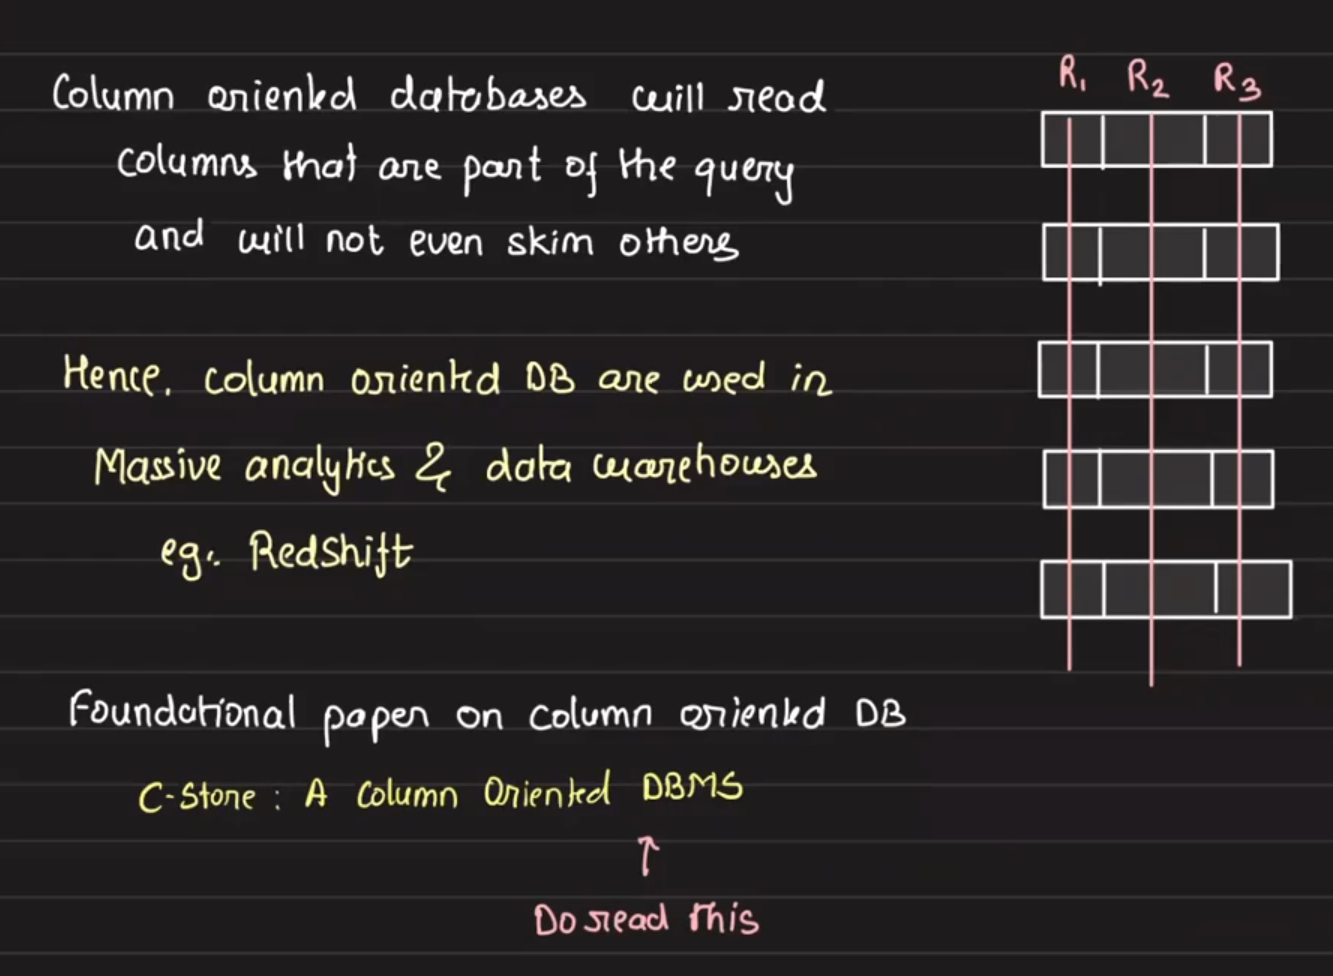 Column oriented databases will read
columns that are part of the query
and will not even skim others
Hence, column oriented DB are used in
Massive analytics & data warehouses
eg: Redshift
Foundational paper on column oriented DB
C-Store: A Column Oriented DBMS
↑
Do read this
R₁ R₂ R₃